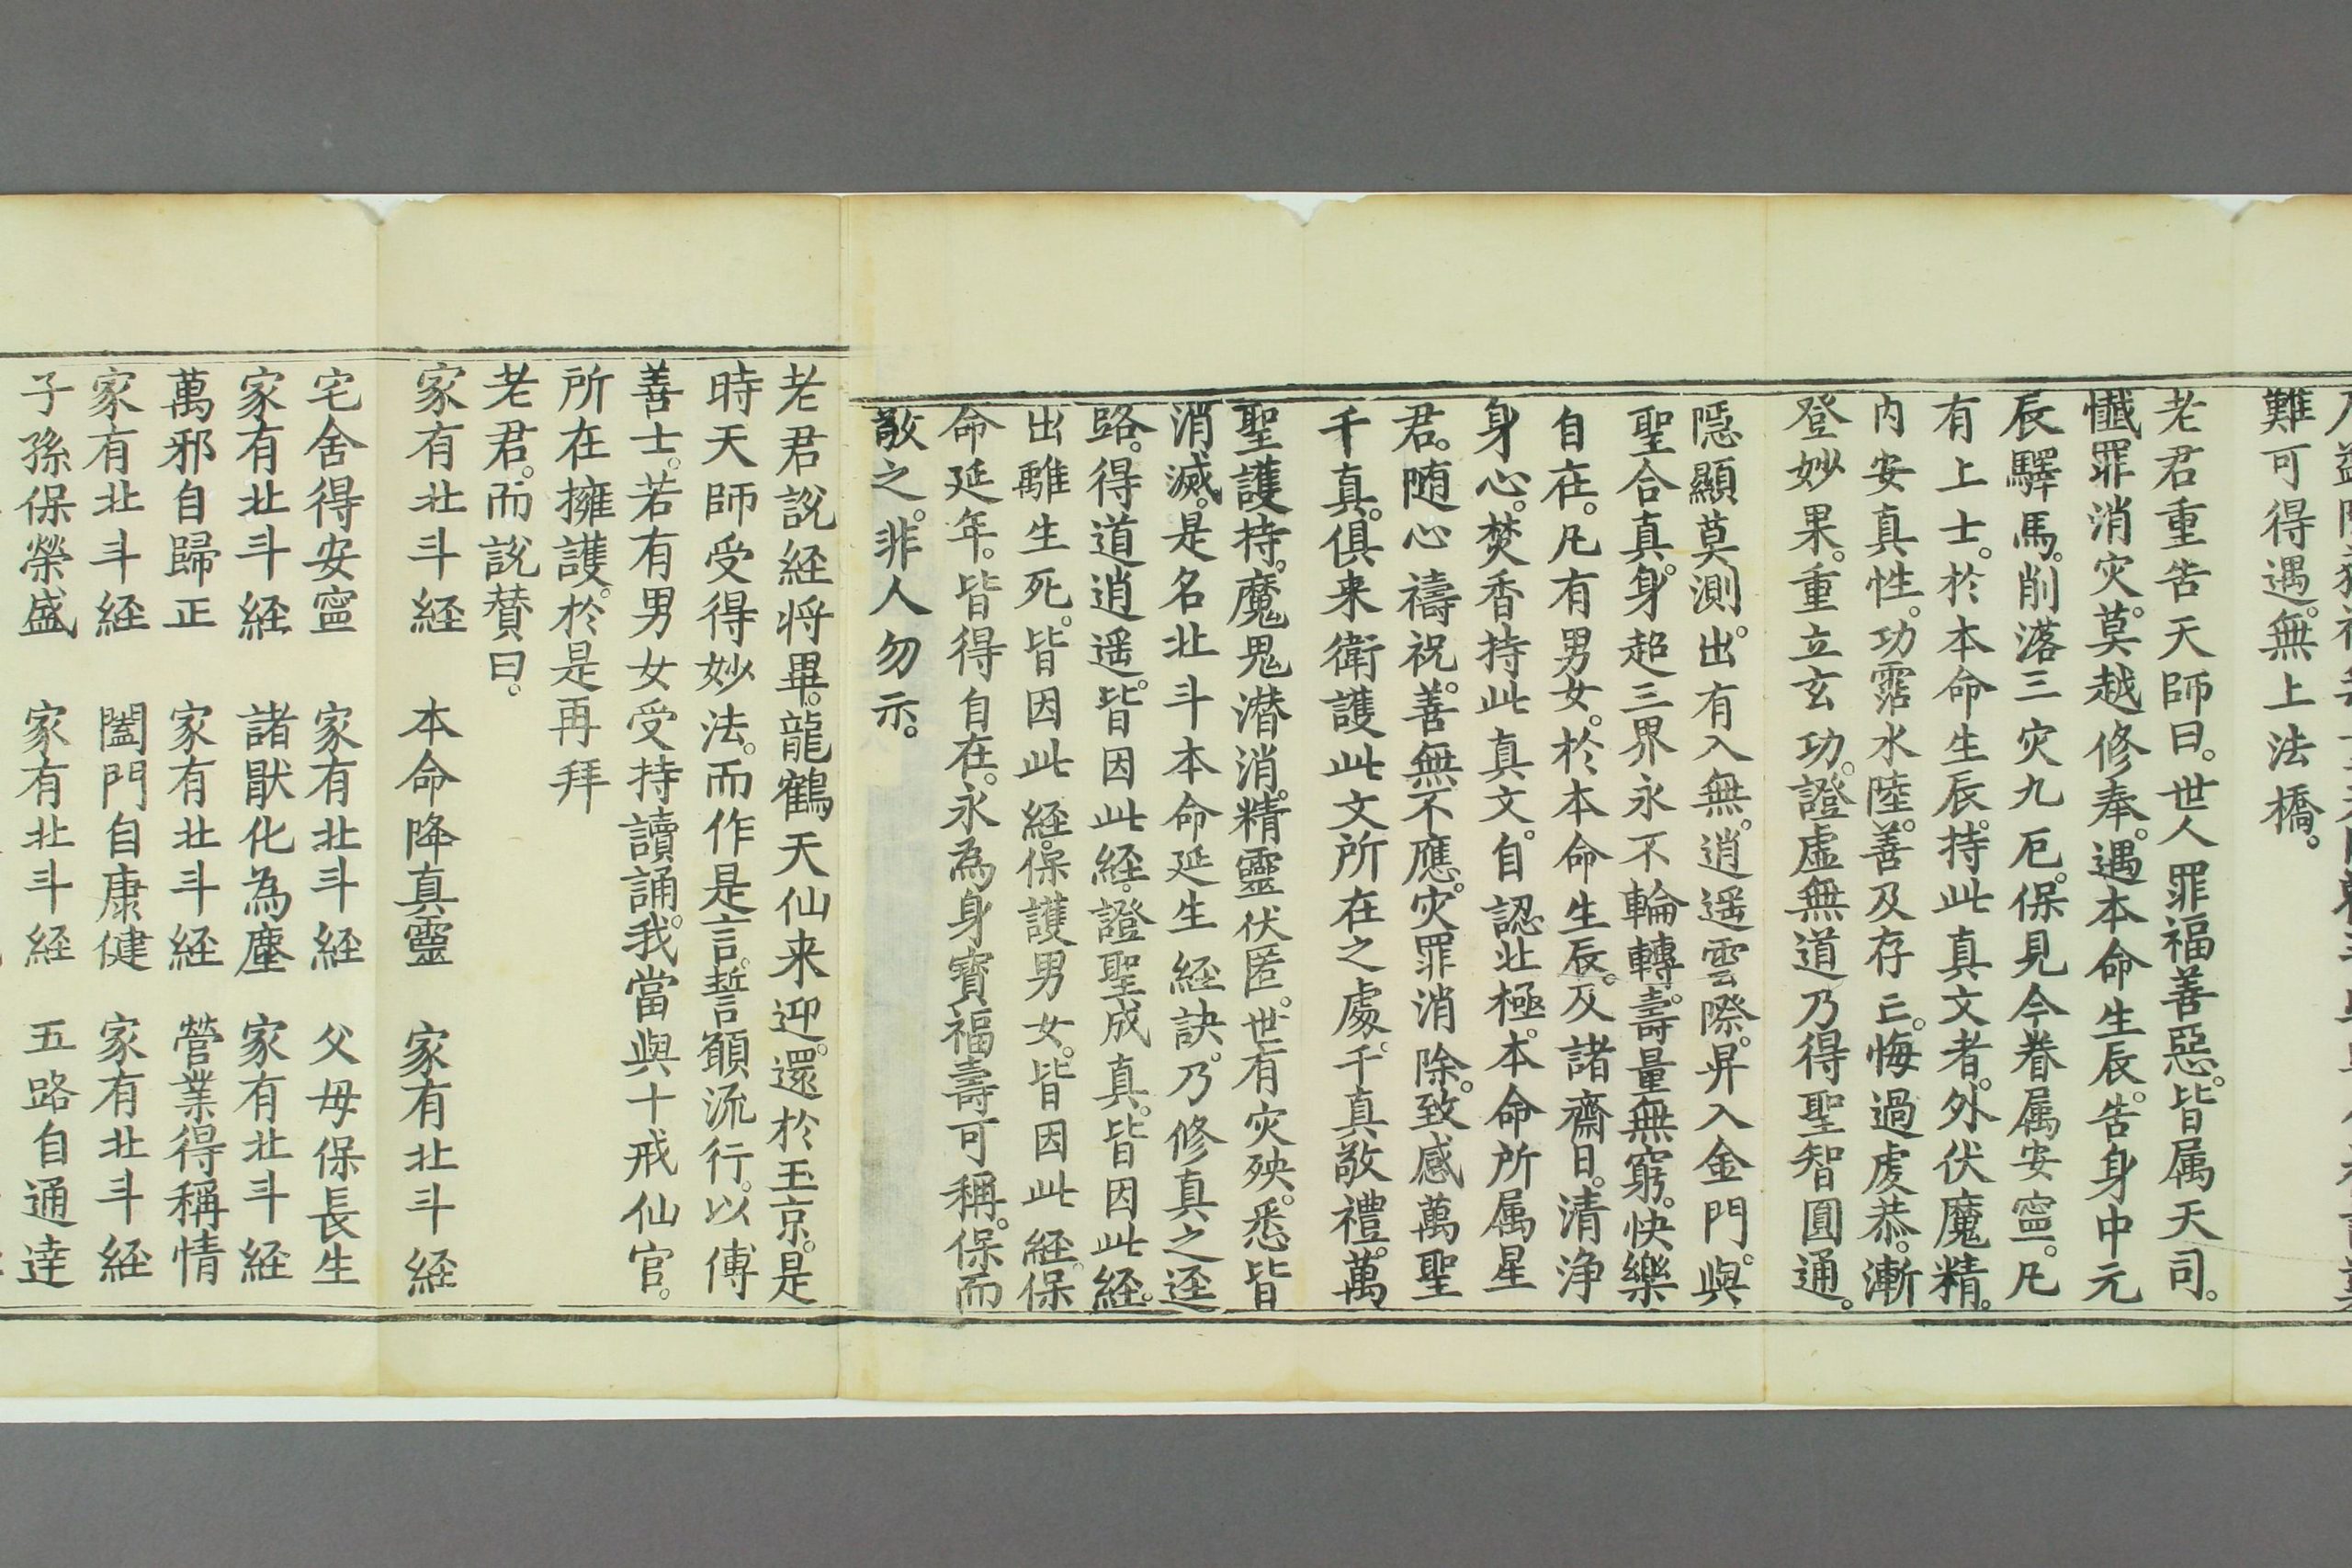 難可得遇。無上法橋。
老君重告天師曰。世人罪福善惡。皆属天司。
懺罪消灾。莫越修奉。遇本命生辰。告身中元
辰驛馬。削落三灾九厄。保見今眷属安寧。凡
有上士。於本命生辰。持此真文者。外伏魔精。
内安真性。功霑水陸。善及存亡。悔過虔恭。漸
登妙果。重立玄功。證虚無道乃得聖智圓通。
隱顯莫測。出有入無。逍遥雲際。昇入金門。與
聖合真。身超三界永不輪轉。壽量無窮。快樂
自在。凡有男女。於本命生辰。及諸齋日。清浄
身心。焚香持此真文。自認北極。本命所属星
君。随心禱祝。善無不應。灾罪消除。致感萬聖
千真。俱来衛護此文所在之處。千真敬禮。萬
聖護持。魔鬼潜消。精靈伏匿。世有灾殃。悉皆
消滅。是名北斗本命延生經訣。乃修真之逕
路。得道逍遥。皆因此經。證聖成真。皆因此經。
出離生死。皆因此經。保護男女。皆因此經。保
命延年。皆得自在。永為身寶福壽可稱。保而
敬之。非人勿示。
老君説経将畢。龍鶴天仙来迎。還於玉京。是
時天師受得妙法。而作是言。誓願流行。以傳
善士。若有男女受持讀誦。我當與十戒仙官。
所在擁護。於是再拜
老君。而説賛曰。
家有北斗経 本命降真靈 家有北斗経
宅舍得安寧 家有北斗経 父母保長生
家有北斗経 諸猒化為塵 家有北斗経
萬邪自歸正 家有北斗経 營業得稱情
家有北斗経 闔門自康健 家有北斗経
子孫保榮盛 家有北斗経 五路自通達